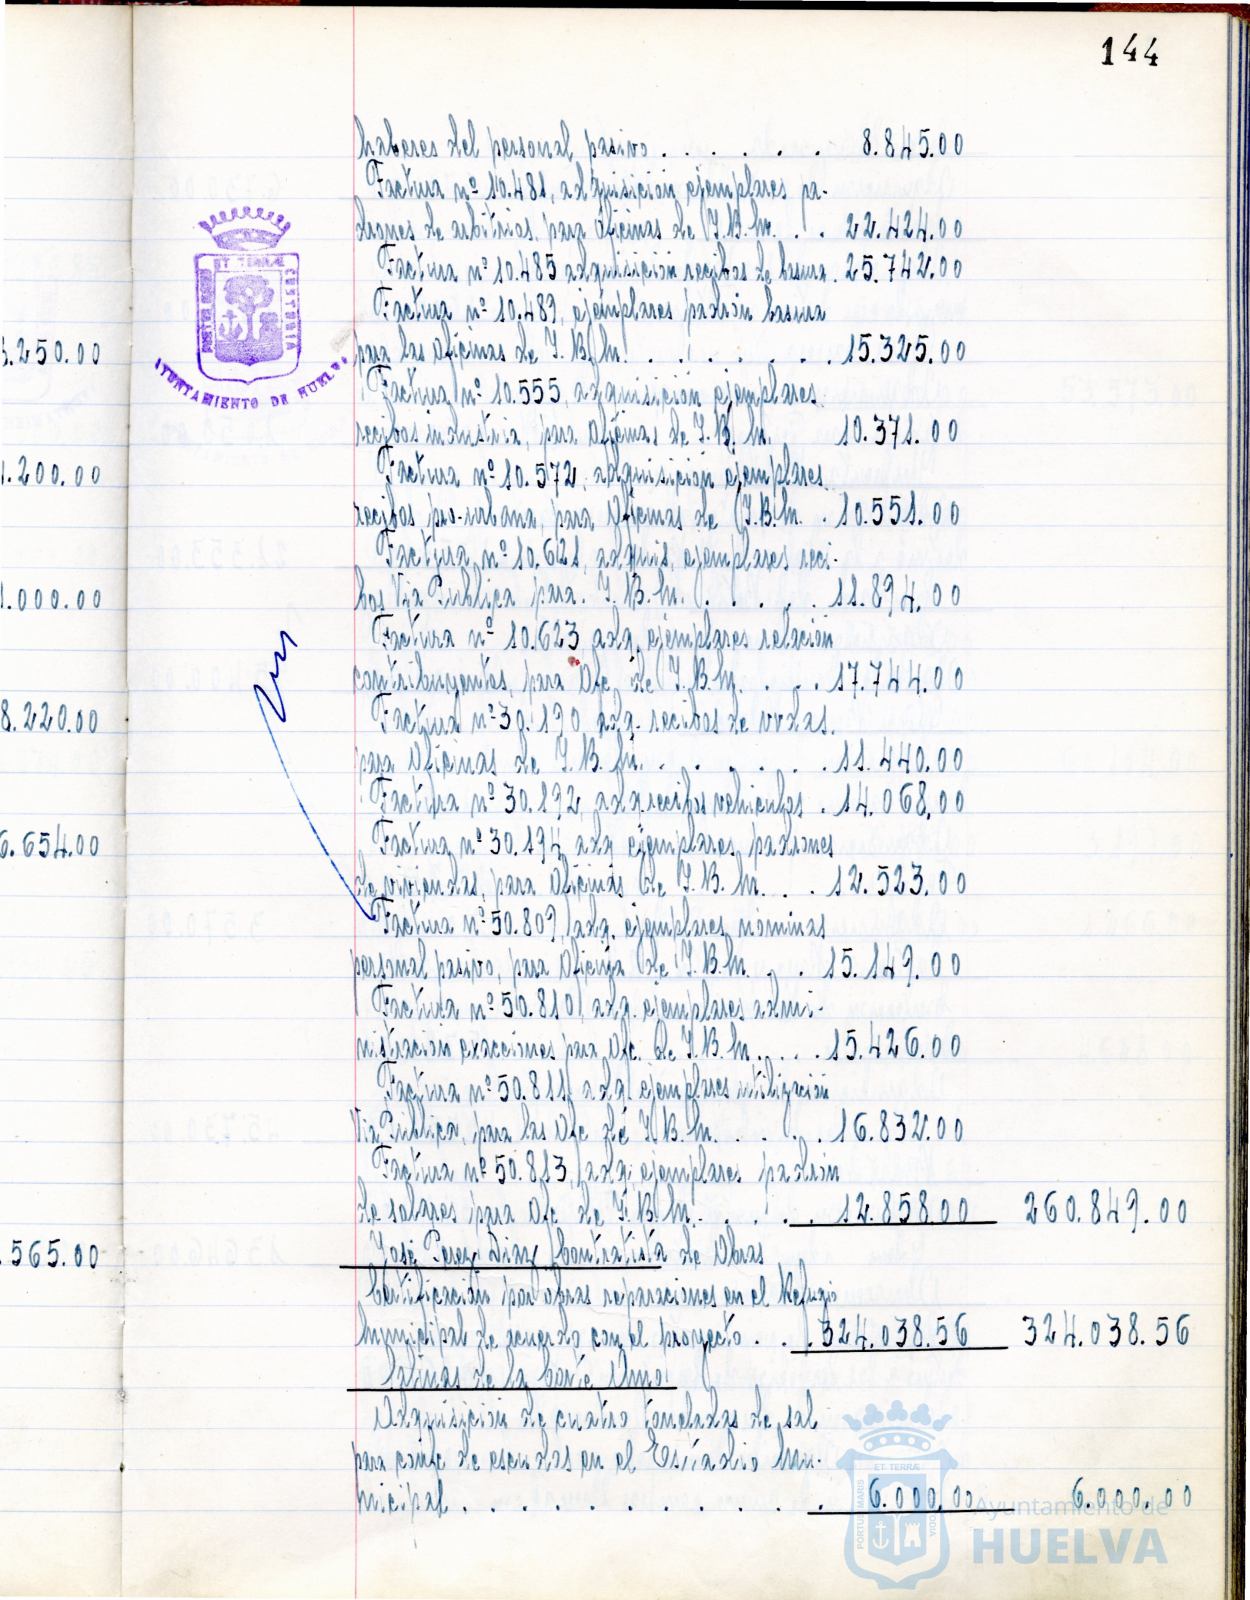 144
haberes del personal pasivo . . . . . . 8.845.00
Factura nº 10.481, adquisicion ejemplares pa-
drones de arbitrios, para Oficinas de I.B.M. . . 22.424.00
Factura nº 10.485 adquisicion recibos de basura. 25.742.00
Factura nº 10.489, ejemplares padrón basura
para las Oficinas de I.B.M. . . . . . . 15.325.00
Factura nº 10.555, adquisición ejemplares
recibos industria, para Oficinas de I.B.M. 10.371.00
Factura nº 10.572, adquisicion ejemplares
recibos pro-urbana, para Oficinas de I.B.M. . 10.551.00
Factura nº 10.621, adquis, ejemplares reci-
bos Via Publica para. I.B.M. . . . . . 11.894.00
Factura nº 10.623 adq. ejemplares relacion
contribuyentes, para Ofc. de I.B.M. . . . 17.744.00
Factura nº 30.190 adq. recibos de
para Oficinas de I.B.M. . . . . . . 11.440.00
Factura nº 30.192, adq recibos vehiculos . 14.068,00
Factura nº 30.194 adq ejemplares padrones
de viviendas, para Oficinas de I.B.M. . . 12.523.00
Factura nº 50.809, adq. ejemplares nominas
personal pasivo, para Oficina de I.B.M. . . 15.149.00
Factura nº 50.810, adq. ejemplares admi-
nistracion exacciones para Ofc. de I.B.M. . . . 15.426.00
Factura nº 50.811 adq ejemplares utilizacion
Via Publica, para las Ofc de I.B.M. . . . . 16.832.00
Factura nº 50.813, adq, ejemplares padrón
de solares para Ofc de I.B.M. . . . . 12.858.00 260.849.00
José Perez Diaz Contratista de Obras
Certificacion por obras reparaciones en el Refugio
Municipal de acuerdo con el proyecto . . . 324.038.56 324.038.56
Salinas de la Corte
Adquisicion de cuatro toneladas de sal
para de en el Estadio Mu-
nicipal . . . . . . . . . . 6.000,00 6.000,00
.250.00
.200.00
.000.00
8.220.00
6.654.00
.565.00
PORTUS MARIS ET TERRÆ CUSTODIA
AYUNTAMIENTO DE HUELVA
PORTUS MARIS ET TERRÆ CUSTODIA
Ayuntamiento de
HUELVA